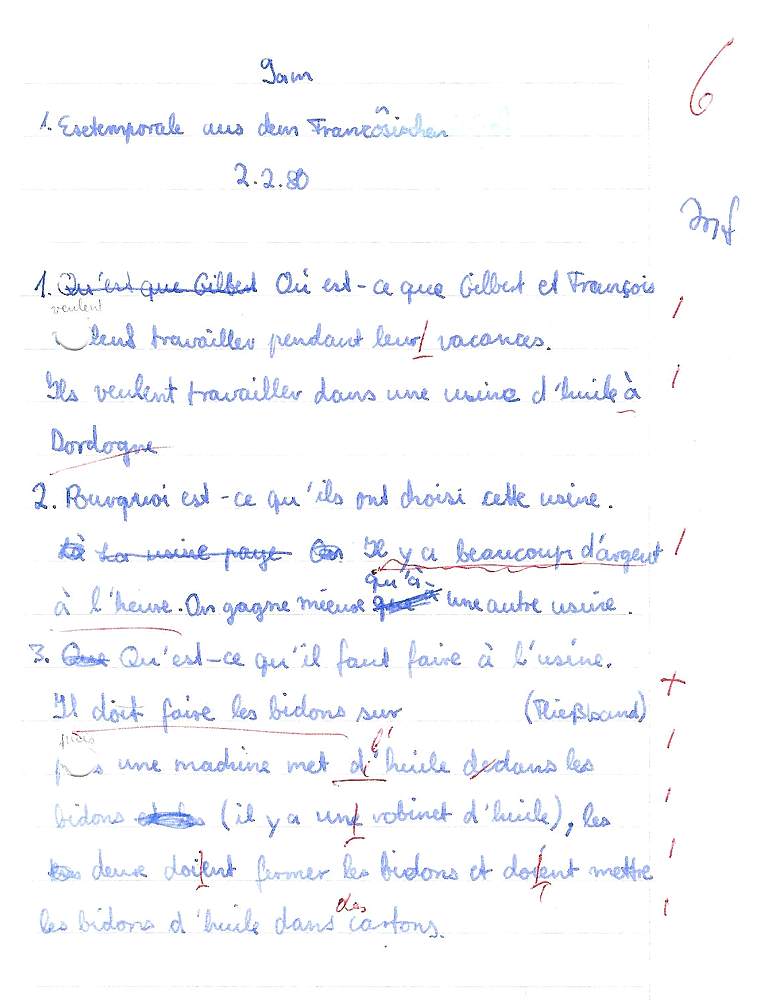 6
1. Exetemporale aus dem Französischen
2.2.80
1. Qu'est que Gilbert Où est-ce que Gilbert et François
veulent
lent travailler pendant leur vacances.
Ils veulent travailler dans une usine d'huile à
Dordogne
2. Pourquoi est-ce qu'ils ont choisi cette usine.
La usine paye On Il y a beaucoup d'argent
qu'à
à l'heure. On gagne mieux que une autre usine.
3. Que Qu'est-ce qu'il faut faire à l'usine.
Il doit faire les bidons sur (Fließband)
puis l'
une machine met d'huile dedans les
bidons (il y a une robinet d'huile), les
deux doient fermer les bidons et doient mettre
des
les bidons d'huile dans cartons.